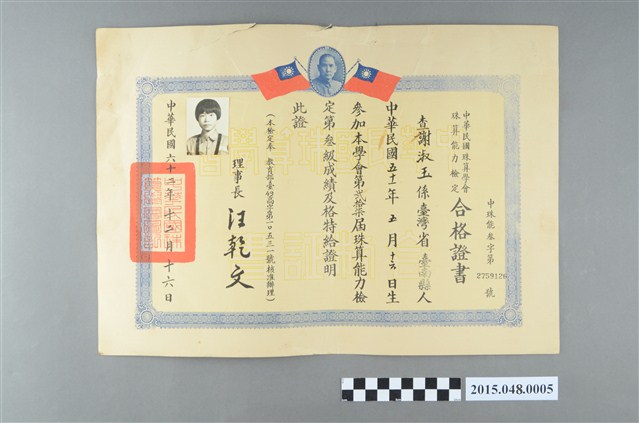 中華民國珠算學會
珠算能力檢定
合格證書
中珠能叁字第2759126號
查謝淑玉係臺灣省臺南縣人
中華民國五十一年五月十六日生
參加本學會第貳拾柒屆珠算能力檢
定第叁級成績及格特給證明
此證
理事長 汪乾文
中華民國六十二年十二月十六日
2015.048.0005